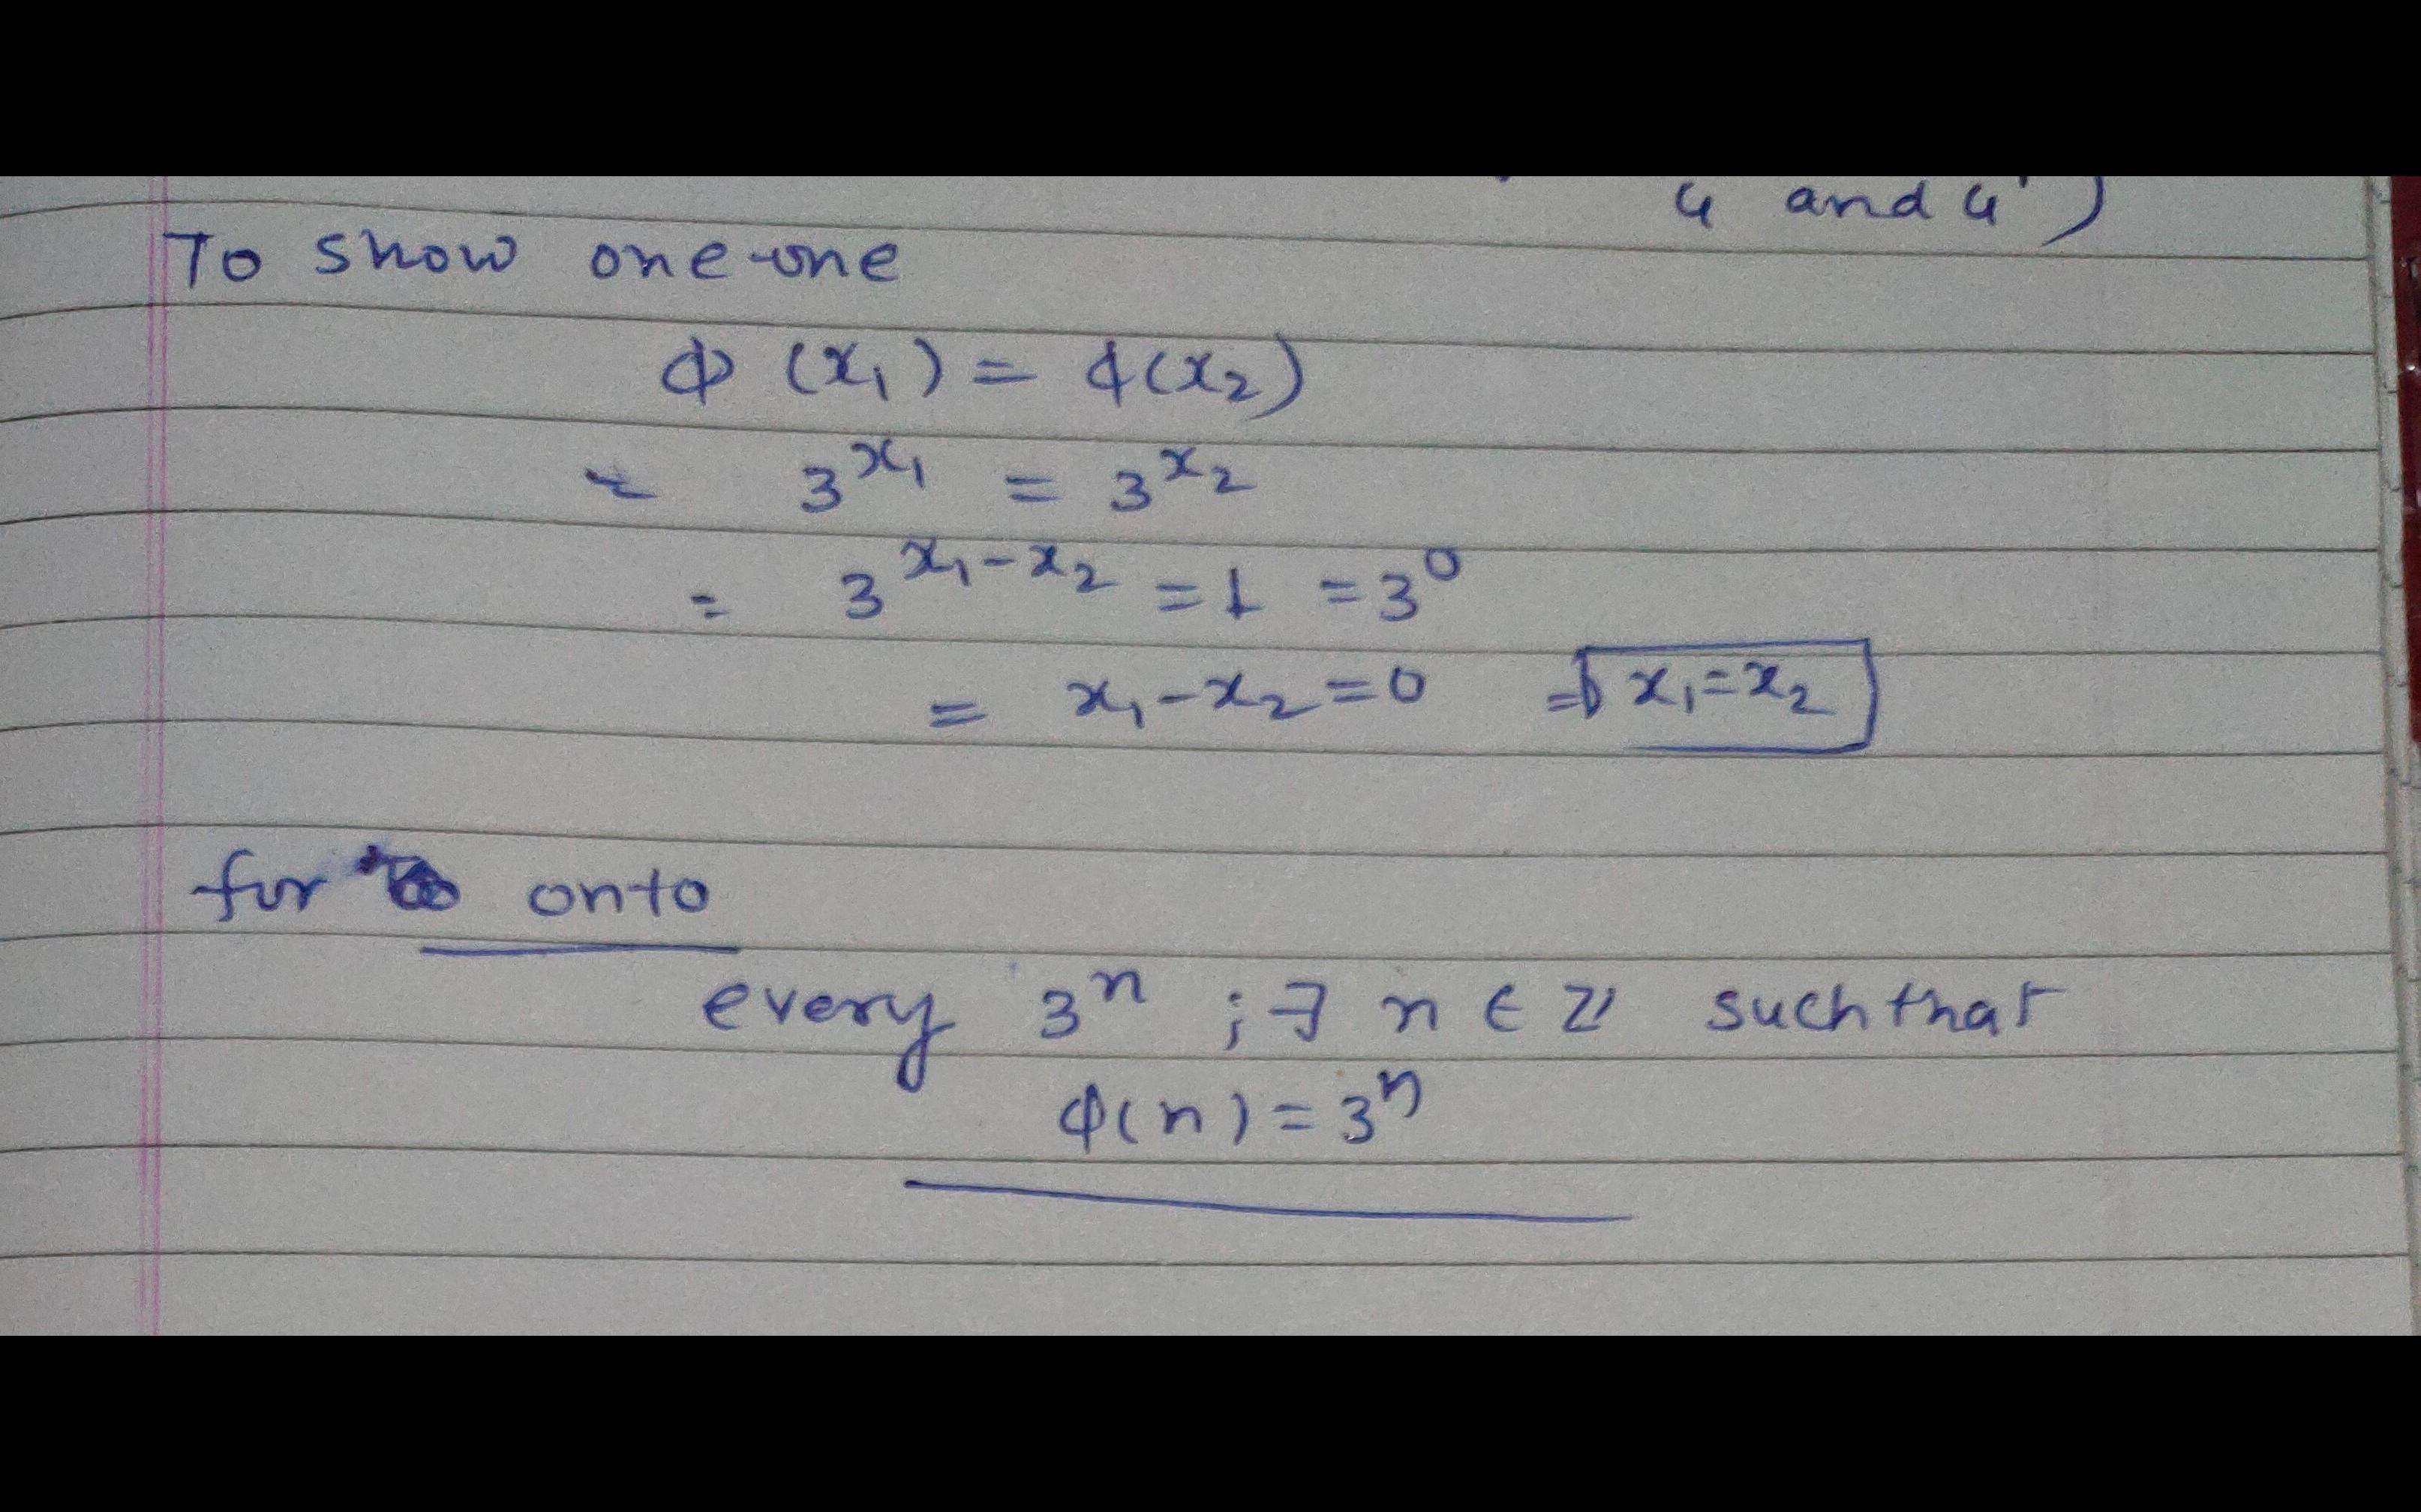 G and G')
To show one-one
ϕ (x₁) = ϕ(x₂)
= 3^x₁ = 3^x₂
= 3^x₁-x₂ = 1 = 3^0
= x₁-x₂ = 0 ⇒ x₁=x₂
for onto
every 3^n ; ∃ n ∈ ℤ such that
ϕ(n) = 3^n